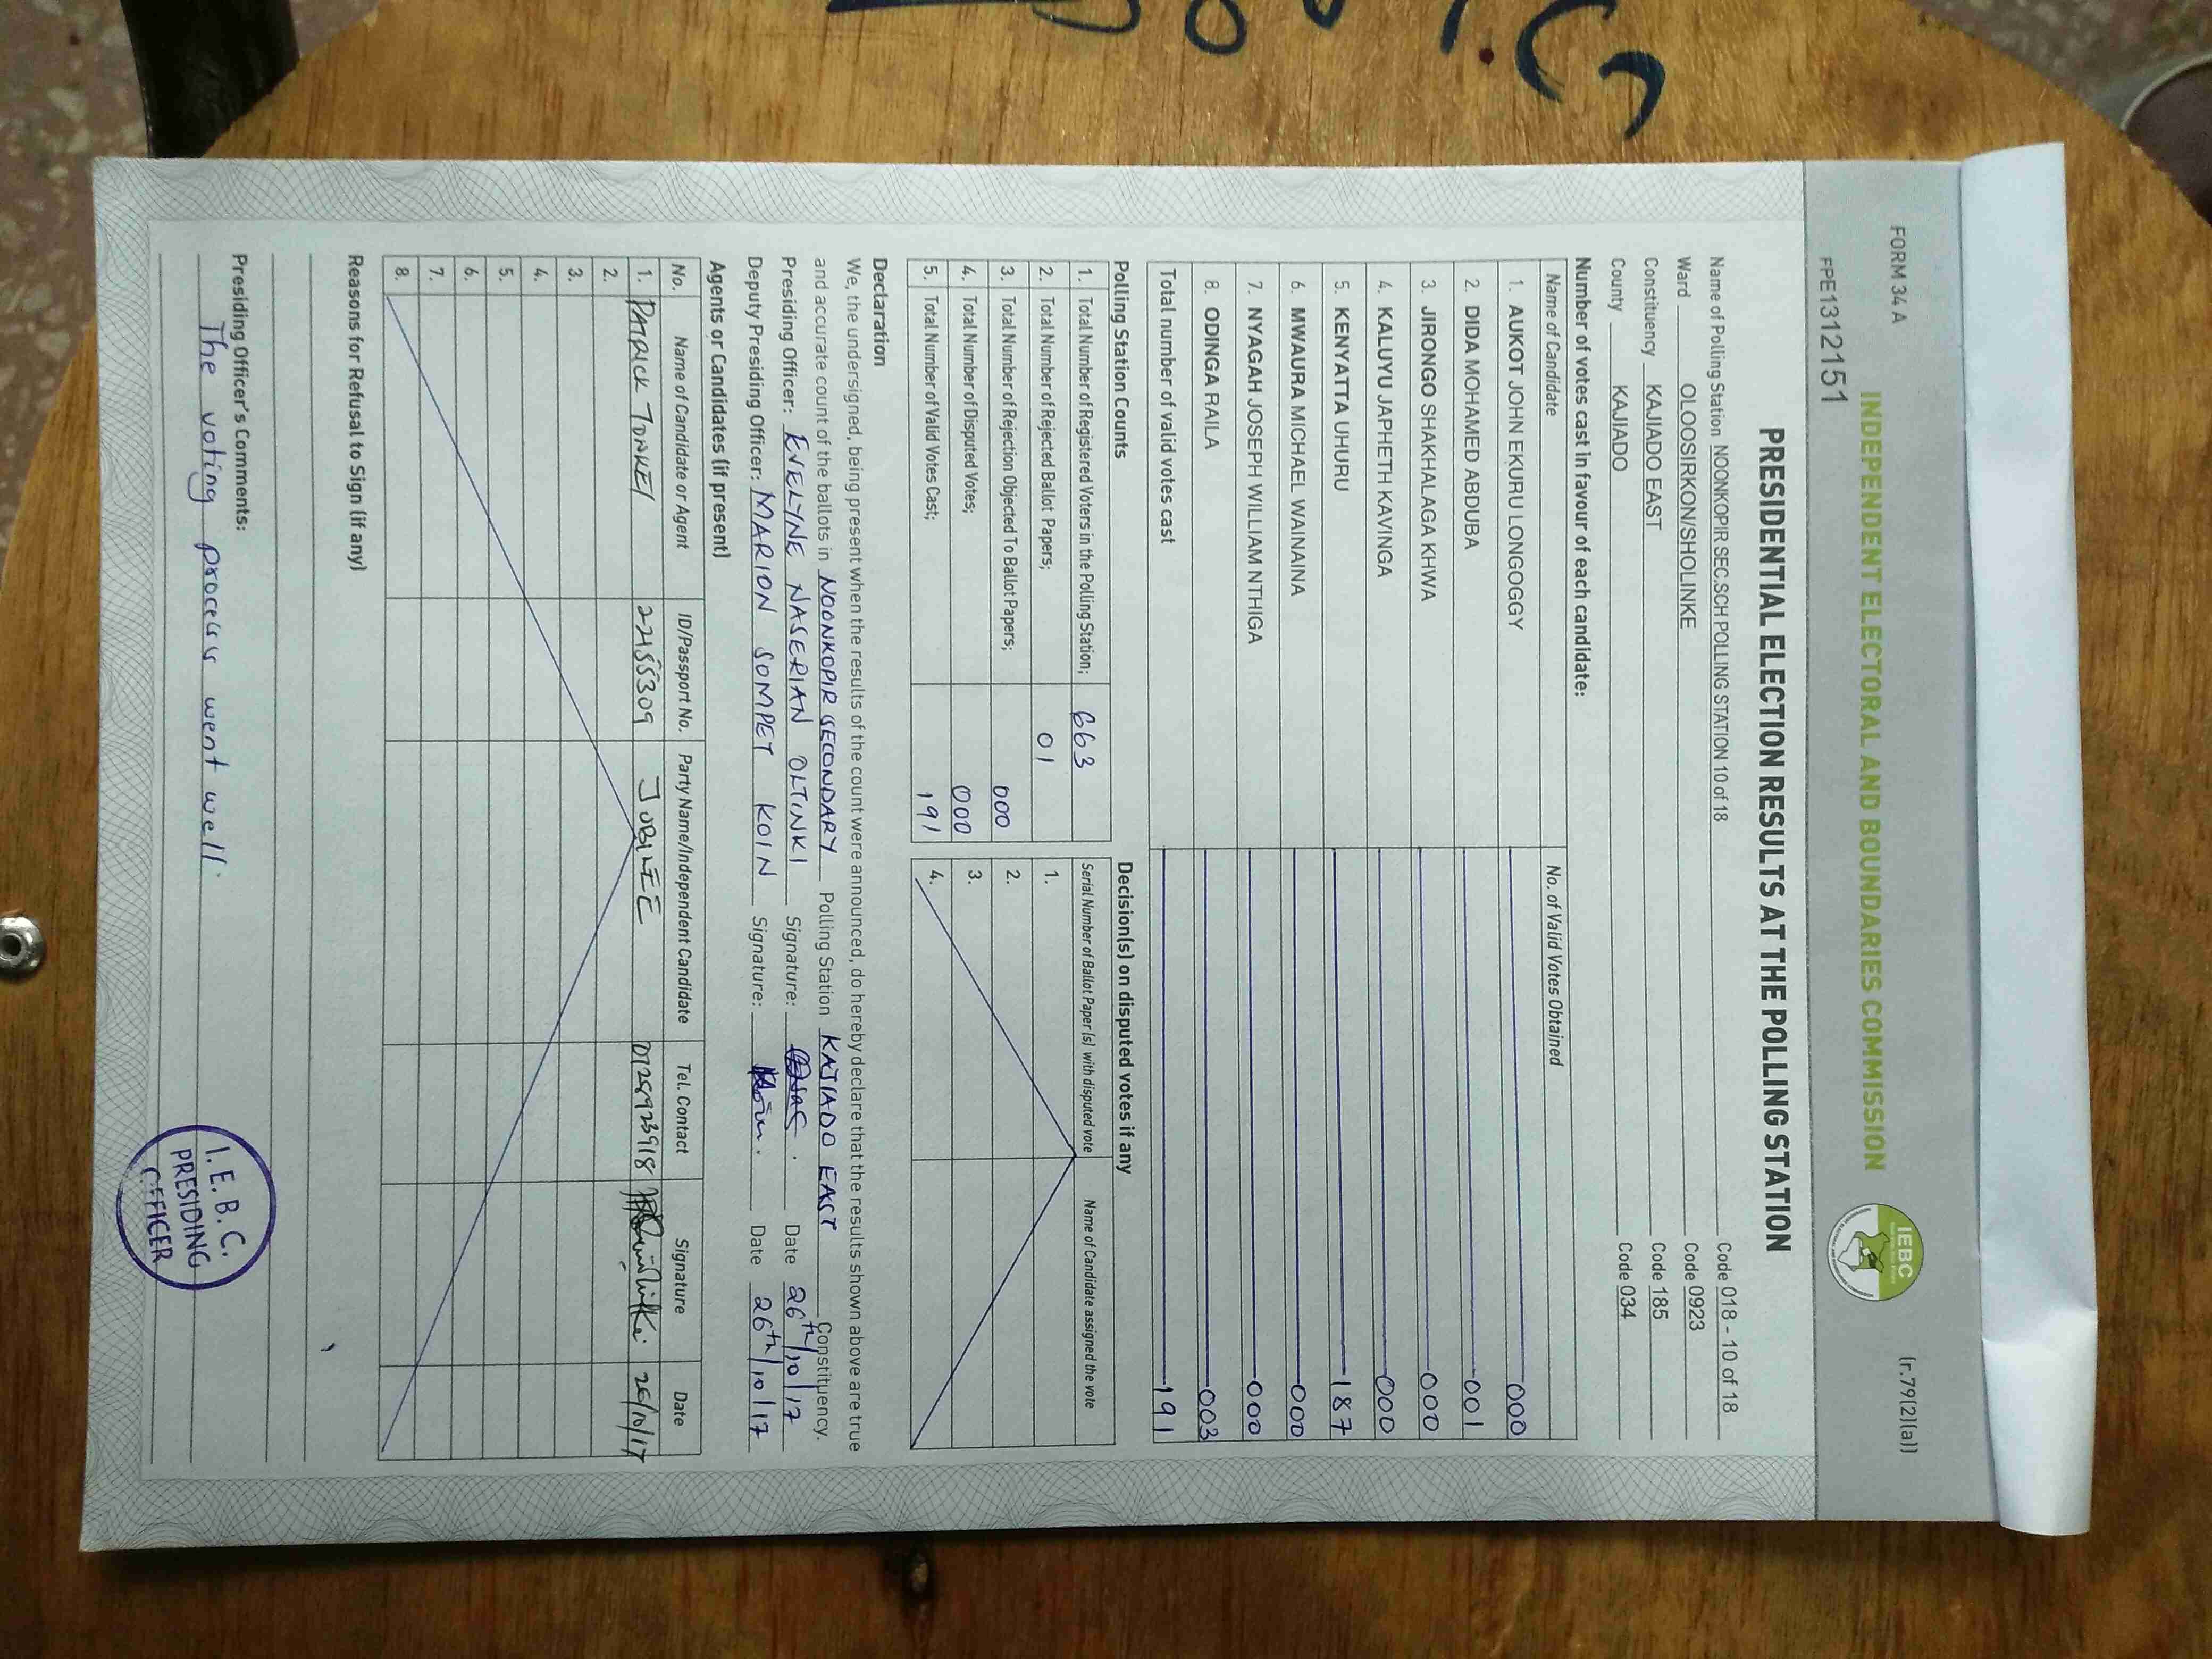 FORM 34 A
(r.79(2)(a))
INDEPENDENT ELECTORAL AND BOUNDARIES COMMISSION
IEBC
FPE1312151
PRESIDENTIAL ELECTION RESULTS AT THE POLLING STATION
Name of Polling Station NOONKOPIR SEC.SCH POLLING STATION 10 of 18 Code 018 - 10 of 18
Ward OLOOSIRKON/SHOLINKE Code 0923
Constituency KAJIADO EAST Code 185
County KAJIADO Code 034
Number of votes cast in favour of each candidate:
Name of Candidate No. of Valid Votes Obtained
1. AUKOT JOHN EKURU LONGOGGY 000
2. DIDA MOHAMED ABDUBA 001
3. JIRONGO SHAKHALAGA KHWA 000
4. KALUYU JAPHETH KAVINGA 000
5. KENYATTA UHURU 187
6. MWAURA MICHAEL WAINAINA 000
7. NYAGAH JOSEPH WILLIAM NTHIGA 000
8. ODINGA RAILA 003
Total number of valid votes cast 191
Polling Station Counts
1. Total Number of Registered Voters in the Polling Station; 663
2. Total Number of Rejected Ballot Papers; 01
3. Total Number of Rejection Objected To Ballot Papers; 000
4. Total Number of Disputed Votes; 000
5. Total Number of Valid Votes Cast; 191
Decision(s) on disputed votes if any
Serial Number of Ballot Paper (s) with disputed vote Name of Candidate assigned the vote
1.
2.
3.
4.
Declaration
We, the undersigned, being present when the results of the count were announced, do hereby declare that the results shown above are true
and accurate count of the ballots in NOONKOPIR SECONDARY Polling Station KAJIADO EAST Constituency.
Presiding Officer: EVELYNE NASERIAN OLTINKI Signature: Date 26th/10/17
Deputy Presiding Officer: MARION SOMPET KOIN Signature: Koin. Date 26th/10/17
Agents or Candidates (if present)
No. Name of Candidate or Agent ID/Passport No. Party Name/Independent Candidate Tel. Contact Signature Date
1. PATRICK TONKEI 22155309 JUBILEE 0725923918 26/10/17
2.
3.
4.
5.
6.
7.
8.
Reasons for Refusal to Sign (if any)
Presiding Officer's Comments:
The voting process went well.
I.E.B.C.
PRESIDING
OFFICER